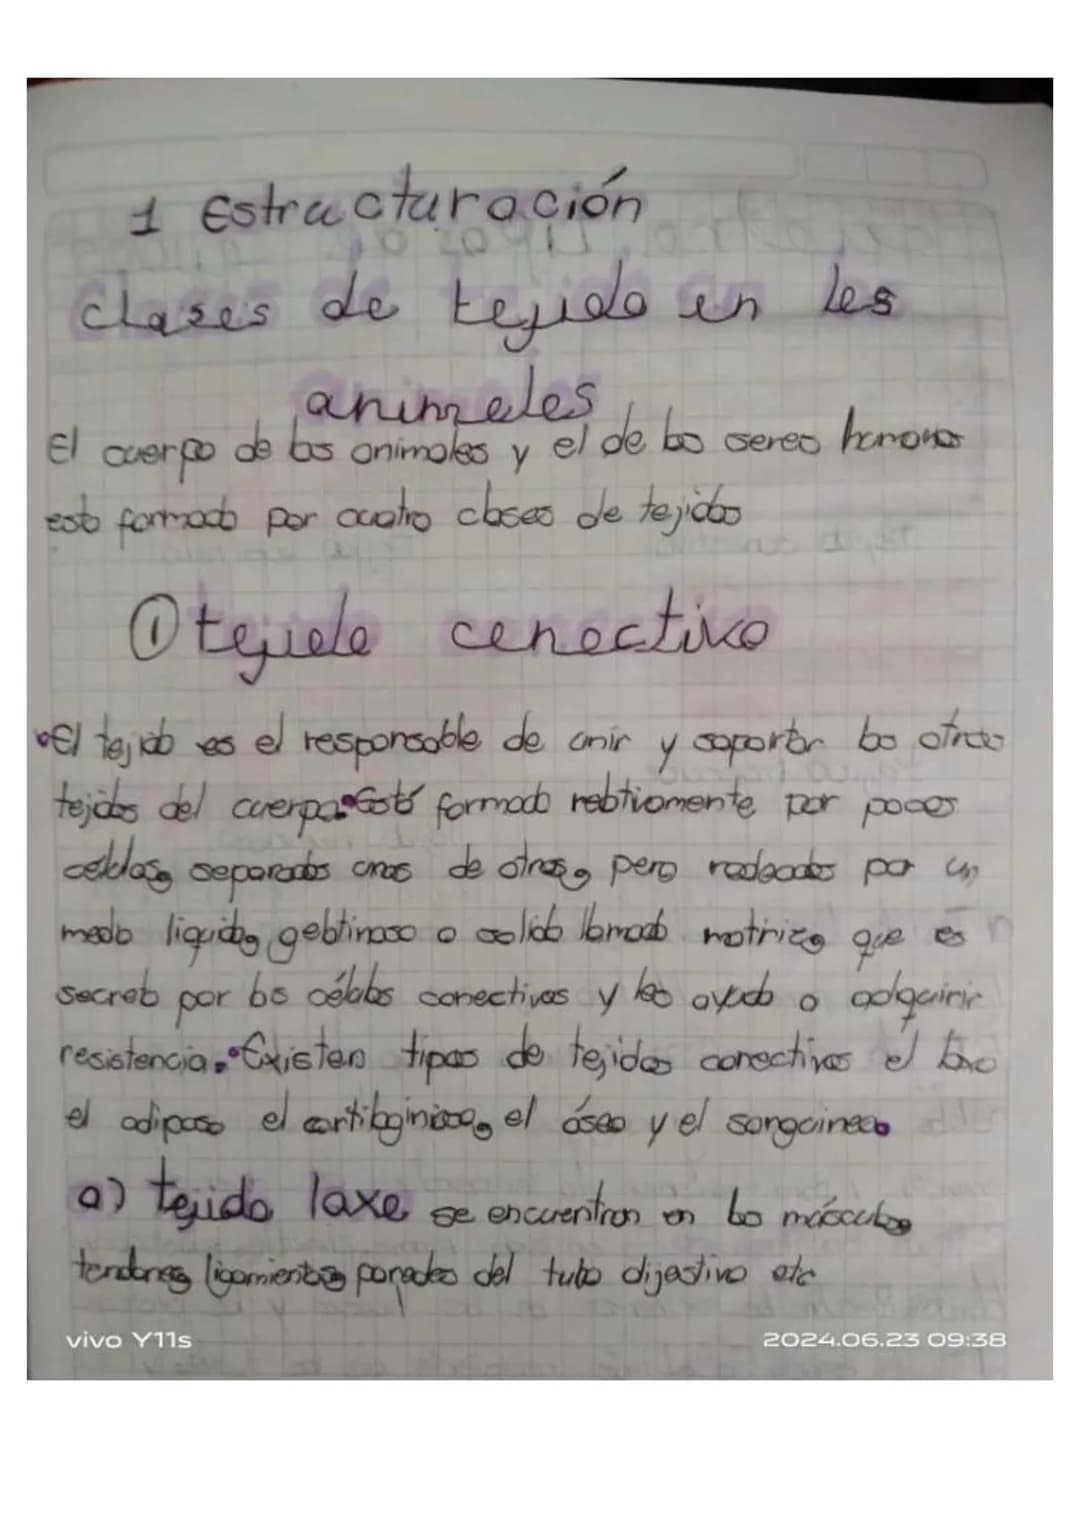 1 Estructuración
clases de tejido en los
animales
El cuerpo de los animales y el de los seres humanos
esta formado por cuatro clases de tejidos
① tejido conectivo
El tejido es el responsable de unir y soportar los otros
tejidos del cuerpo. Está formado relativamente por pocas
celulas, separadas unas de otras, pero rodeadas por un
medio liquido, gelatinoso o solido llamado matriz, que es
secreta por las células conectivas y les ayuda a adquirir
resistencia. Existen tipos de tejidos conectivos el laxo
el adiposo el cartilaginioso, el óseo y el sanguineo.
a) tejido laxo se encuentran en los músculos
tendones, ligamientos, paredes del tubo dijestivo etc
vivo Y11s
2024.06.23 09:38